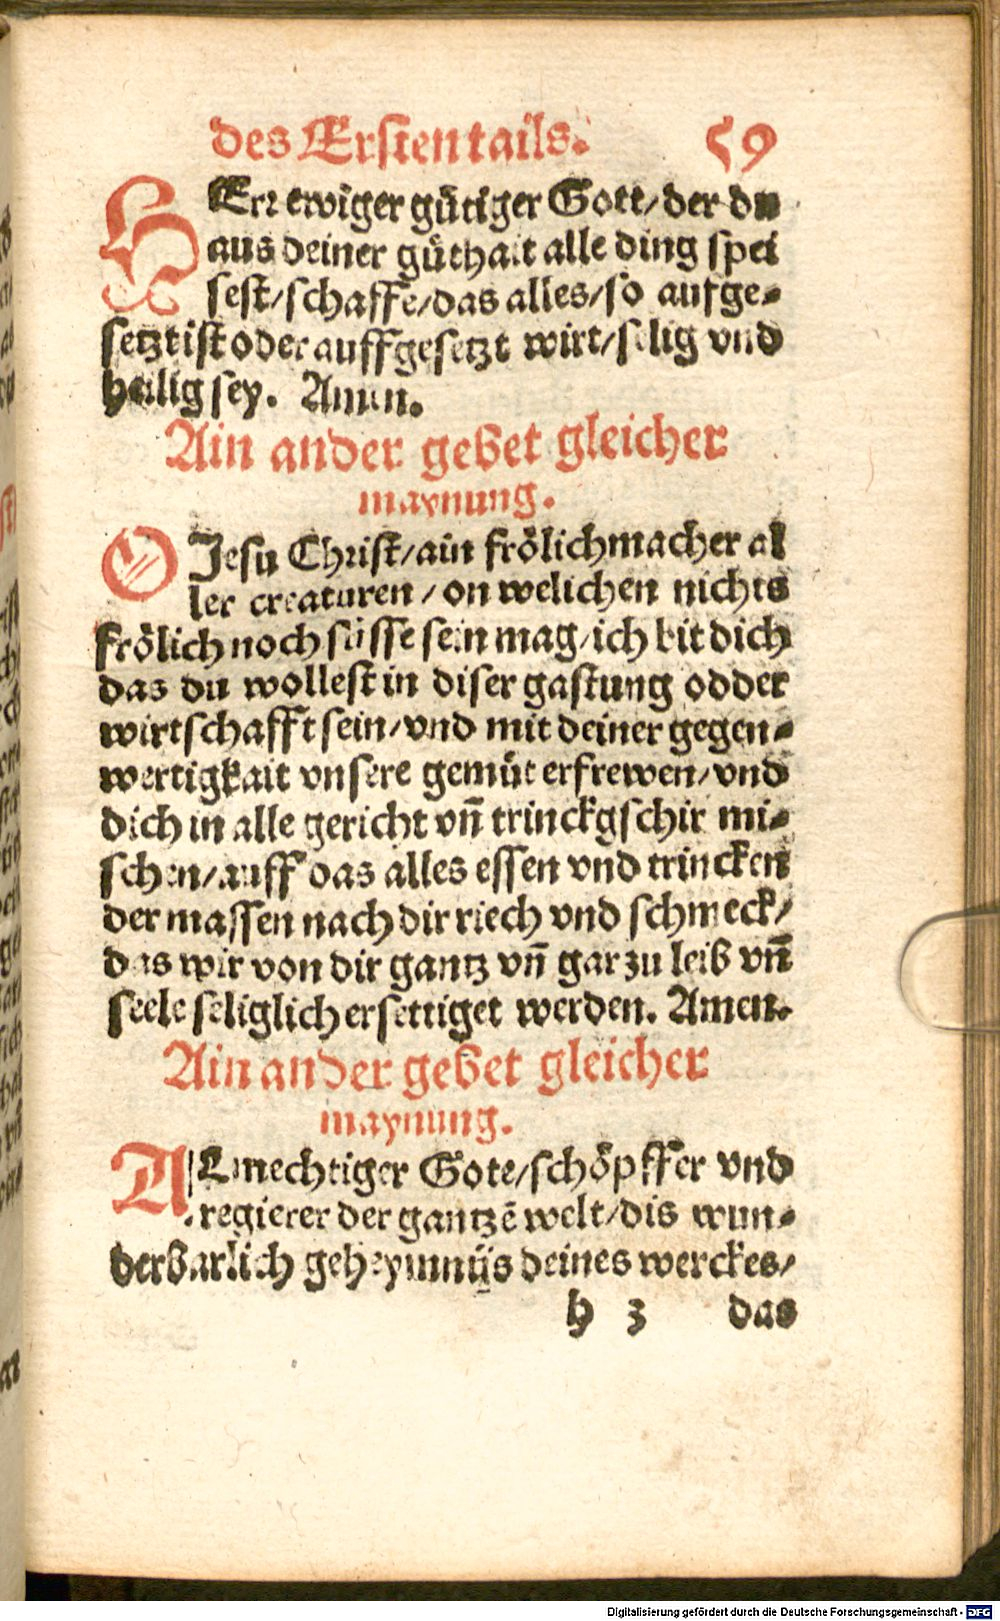 des Ersten tails. 59
HErr ewiger gütiger Gott/ der du
aus deiner güthait alle ding spei
sest/ schaffe/ das alles/ so aufge-
setzt ist oder auffgesetzt wirt/ selig vnd
heilig sey. Amen.
Ain ander gebet gleicher
maynung.
O Jesu Christ/ ain frölichmacher al
ler creaturen / on welichen nichts
frölich noch süsse sein mag/ ich bit dich
das du wollest in diser gastung odder
wirtschafft sein/ vnd mit deiner gegen-
wertigkait vnsere gemüt erfrewen/ vnd
dich in alle gericht vñ trinckgschir mi-
schen/ auff das alles essen vnd trincken
der massen nach dir riech vnd schmeck/
das wir von dir gantz vñ gar zu leib vñ
seele seliglich ersettiget werden. Amen.
Ain ander gebet gleicher
maynung.
ALmechtiger Gote/ schöpffer vnd
regierer der gantzẽ welt/ dis wun-
derbarlich geheymnijs deines werckes/
h 3 das
Digitalisierung gefördert durch die Deutsche Forschungsgemeinschaft - DFG